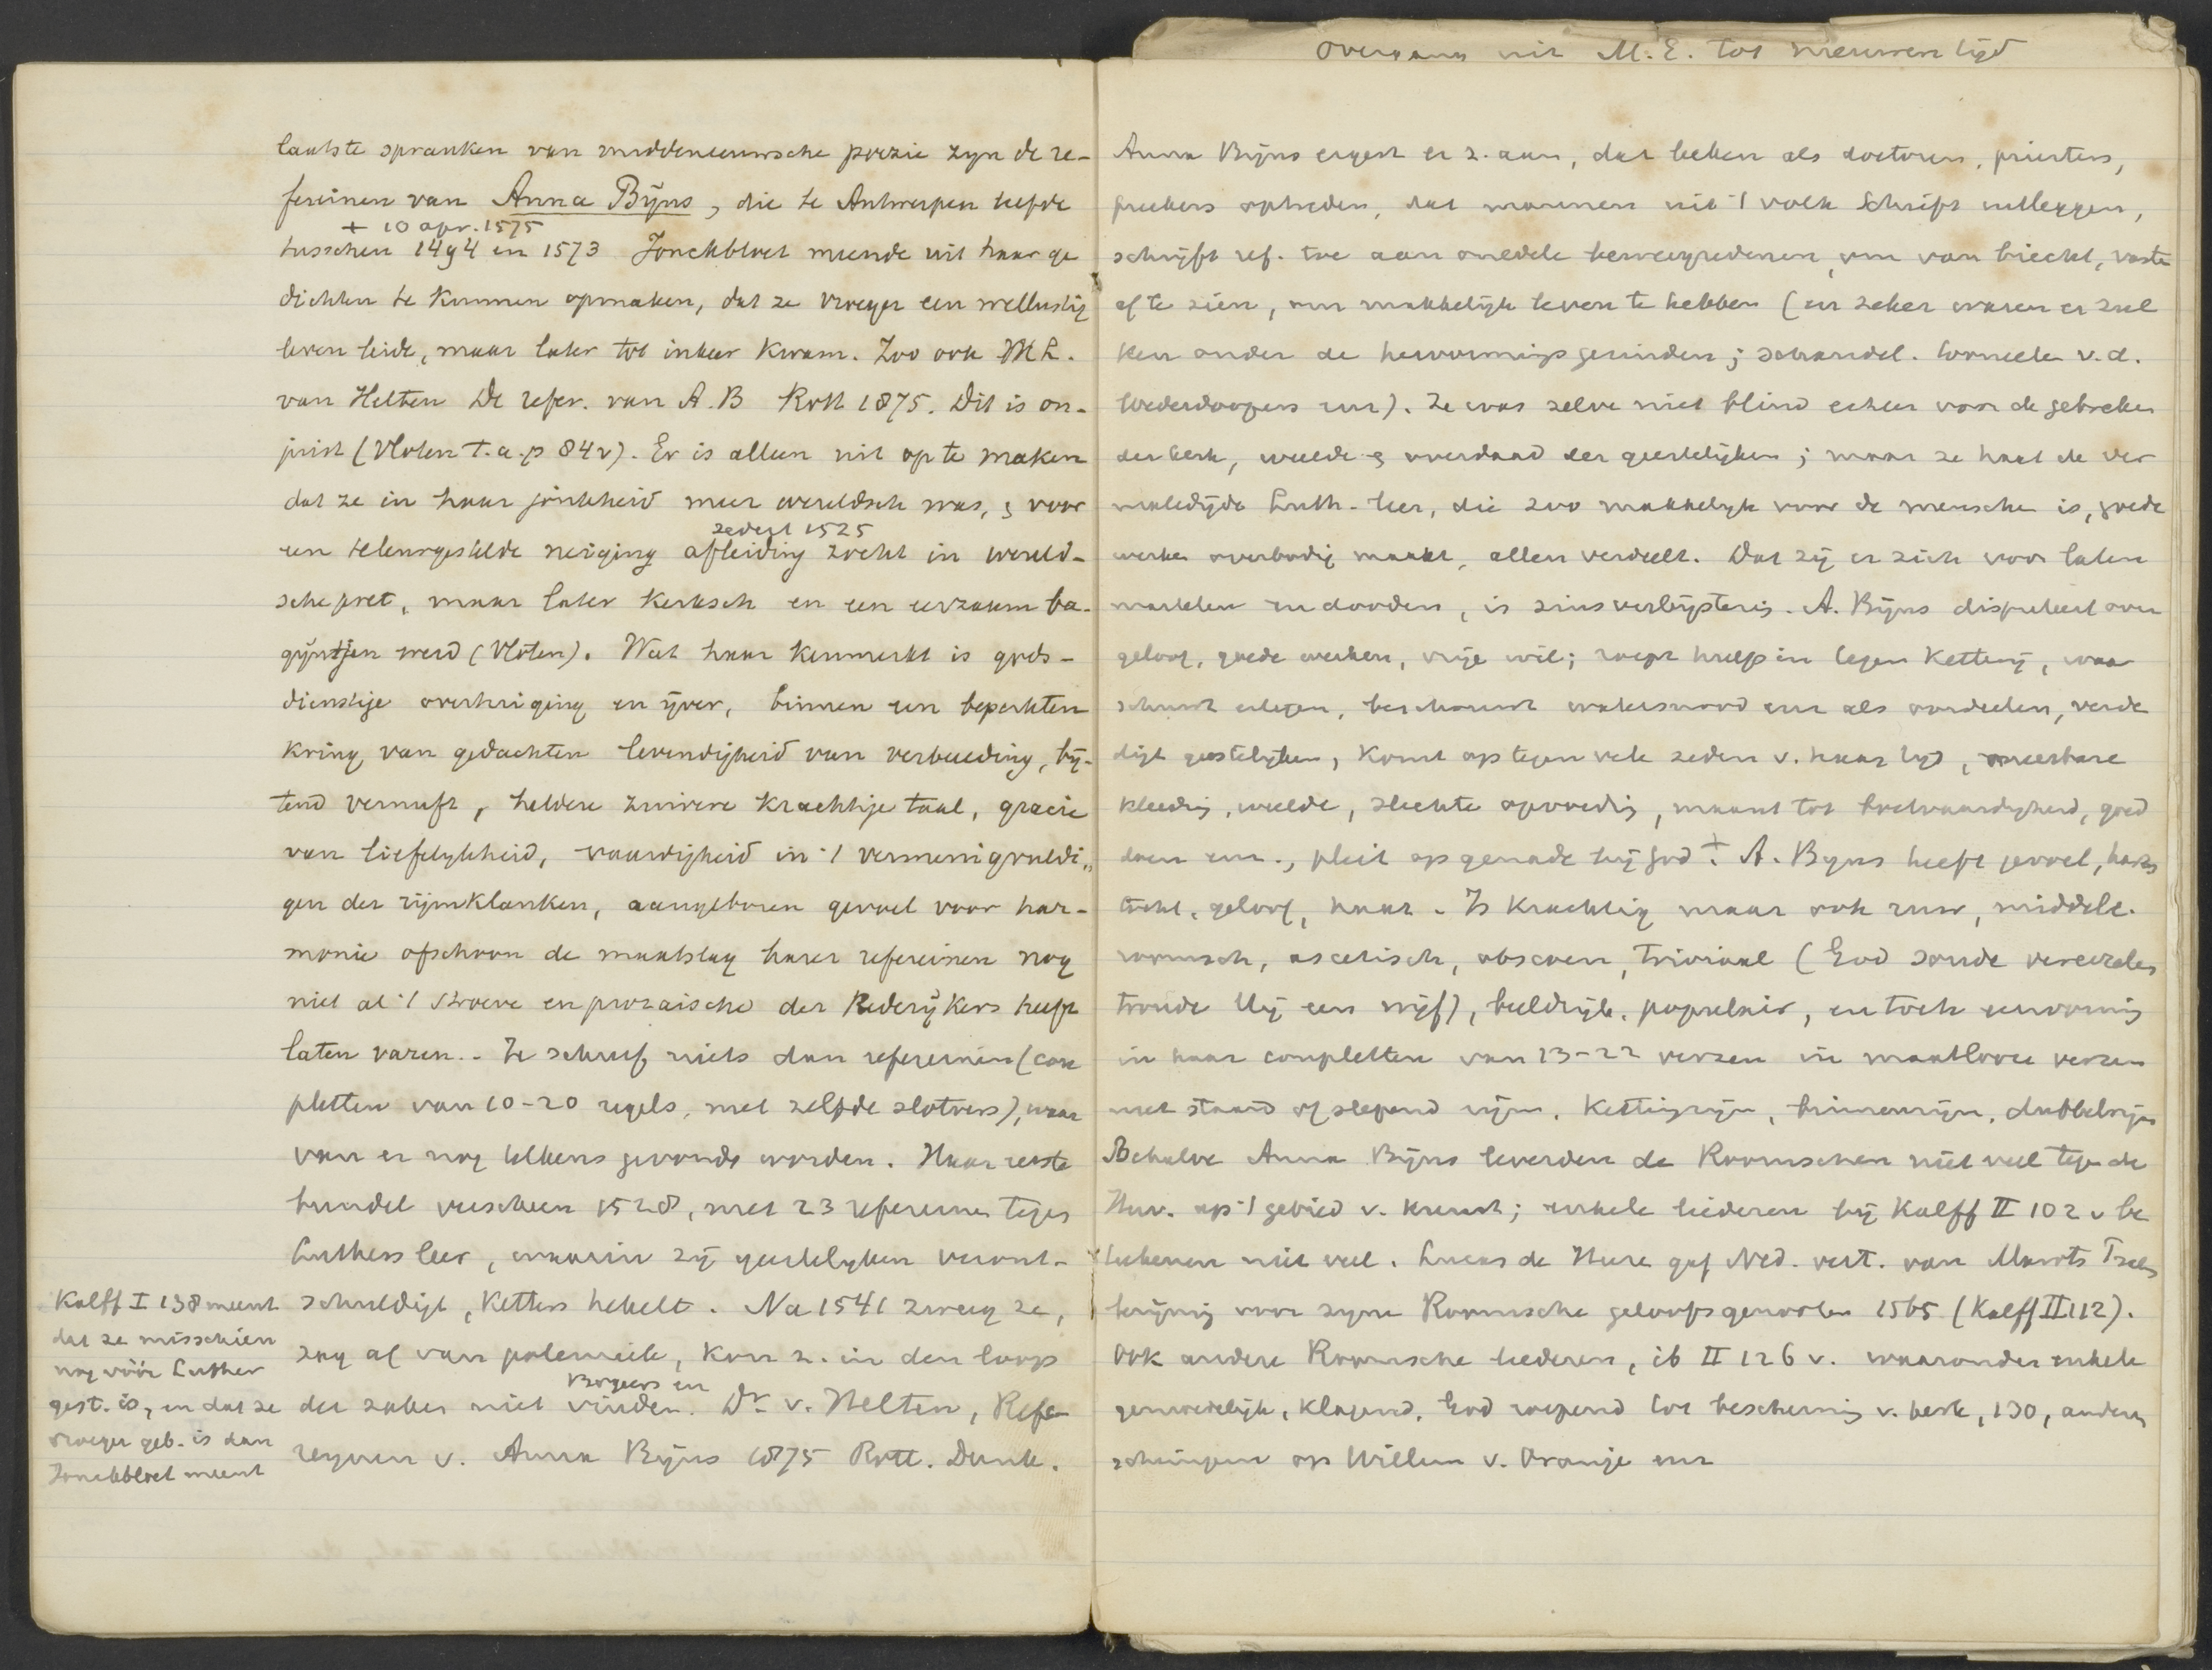 laatste spranken van middeneeuwsche poezie zijn de re-
fereinen van Anna Bijns, die te Antwerpen leefde
+ 10 apr. 1575
tusschen 1494 en 1573 Jonckbloet meende uit haar ge
dichten te kunnen opmaken, dat ze vroeger een wellustig
leven leide, maar later tot inkeer kwam. Zoo ook M L.
van Helten De refer. van A. B Rott 1875. Dit is on-
juist (Vloten t.a.p 84 v). Er is alleen uit op te maken
dat ze in haar jonkheid meer wereldsch was, & voor
zedert 1525
een teleurgestelde neiging afleiding zocht in wereld-
sche pret, maar later kerksch en een eerzaam ba-
gijntjen werd (Vloten). Wat haar kenmerkt is gods-
dienstige overtuiging en ijver, binnen een beperkten
kring van gedachten levendigheid van verbeelding, bij-
tend vernuft, heldere zuivere krachtige taal, gracie
van liefelykheid, vaardigheid in 't vermenigvuldi„
gen der rijmklanken, aangeboren gevoel voor har-
monie ofschoon de maatslag harer refereinen nog
niet al 't stroeve en prozaische der Rederijkers heeft
laten varen. - Ze schreef niets dan refereinen (cou
pletten van 10-20 regels, met zelfde slotvers), waar
van er nog telkens gevonde worden. Haar eerste
bundel verscheen 1528, met 23 refereine tegen
Luthers leer, waarin zij geestelyken veront-
schuldigt, Ketters hekelt. Na 1541 zweeg ze,
zag af van polemiek, kon z. in den loop
Borgers en
der zaken niet vinden. Dr. v. Helten, Refe-
reynen v. Anna Bijns 1875 Rott. Dunk.
Kalff I 138 meent
dat ze misschien
nog vóór Luther
gest. is, en dat ze
vroeger geb. is dan
Jonckbloet meent
Overgang uit M.E. tot nieuwen tijd
Anna Bijns ergert er z. aan, dat leeken als doctoren, priesters,
preekers optreden, dat mannen uit 't volk Schrift uitleggen,
schrijft ref. toe aan onedele beweegredenen, om van biecht, vaste
af te zien, om makkelijk leven te hebben (en zeker waren er zul
ken onder de hervormingsgezinden; schandel. tooneelen v.d.
Wederdoopers enz). Ze was zelve niet blind echter voor de gebreken
der kerk, weelde & overdaad der geestelijken; maar ze haat de ver
maledijde Luth. leer, die zoo makkelyk voor de mensche is, goede
werken overbodig maakt, allen verdeelt. Dat zij er zich voor laten
martelen en dooden, is zinsverbijstering. A. Bijns disputeert over
geloof, goede werken, vrije wil; roept hulp in tegen Ketterij, waar
schuwt edelen, beschouwt watersnood enz als oordeelen, verde
digt geestelyken, komt op tegen vele zeden v. haar tijd, oneerbare
kleeding, weelde, slechte opvoeding, maant tot boetvaardigheid, goed
doen enz., pleit op genade bij God. + A. Byns heeft gevoel, harts
tocht, geloof, haat. Is krachtig maar ook ruw, middele.
roomsch, ascetisch, obscoen, triviaal (God soude vereezelen
troude Hij een wijf), beeldrijk, populair, en toch eenvormig
in haar coupletten van 13-22 verzen in maatlooze verzen
met staand of slepend rijm, kettingrijm, binnenrijm, dubbelrijm
Behalve Anna Bijns leverden de Roomschen niet veel tegen de
Herv. op 't gebied v. kunst; enkele liederen bij Kalff II 102 v be
teekenen niet veel. Lucas de Heere gaf Ned. vert. van Marots Psalm
berijming voor zyne Roomsche geloofsgenooten 1565 (Kalff II 112).
Ook andere Roomsche liederen, ib II 126 v. waaronder enkele
gemoedelijk, klagend, God roepend tot bescherming v. kerk, 130, andere
schimpen op Willem v. Oranje enz